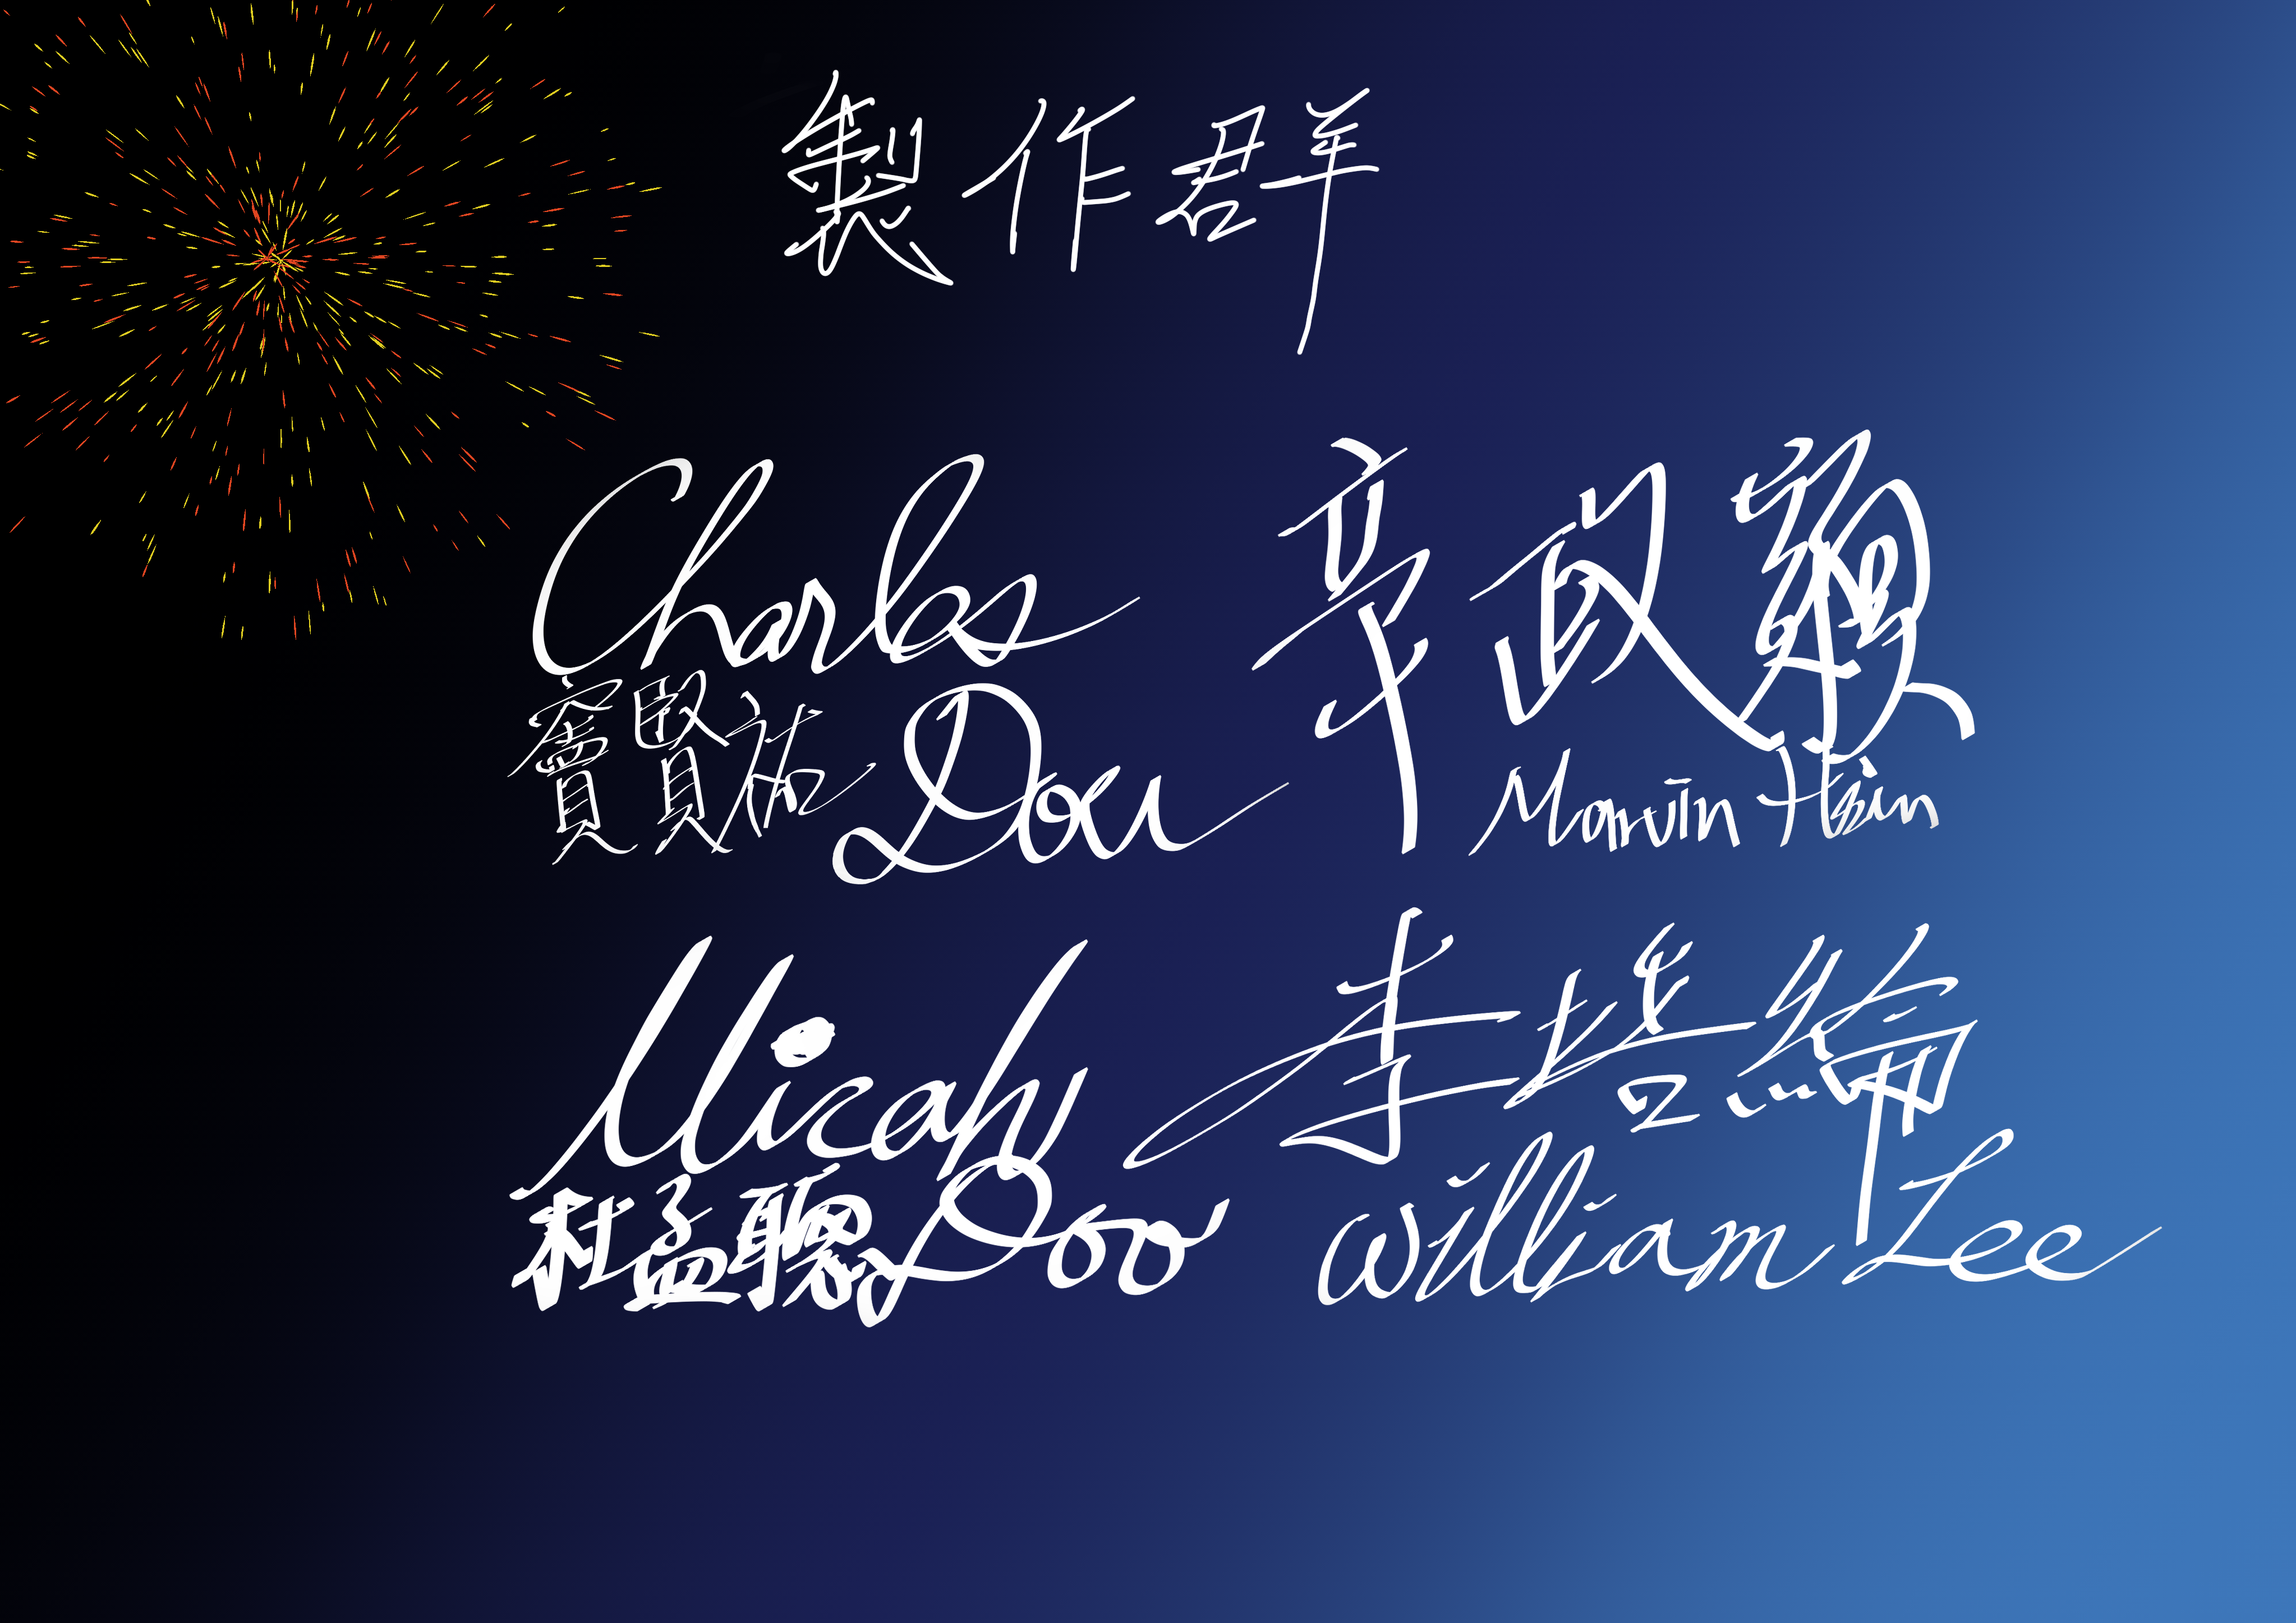 製作群
Charles Dou
竇賢祐
辛政穎
Marvin Hsin
Micah Doo
李
William Lee